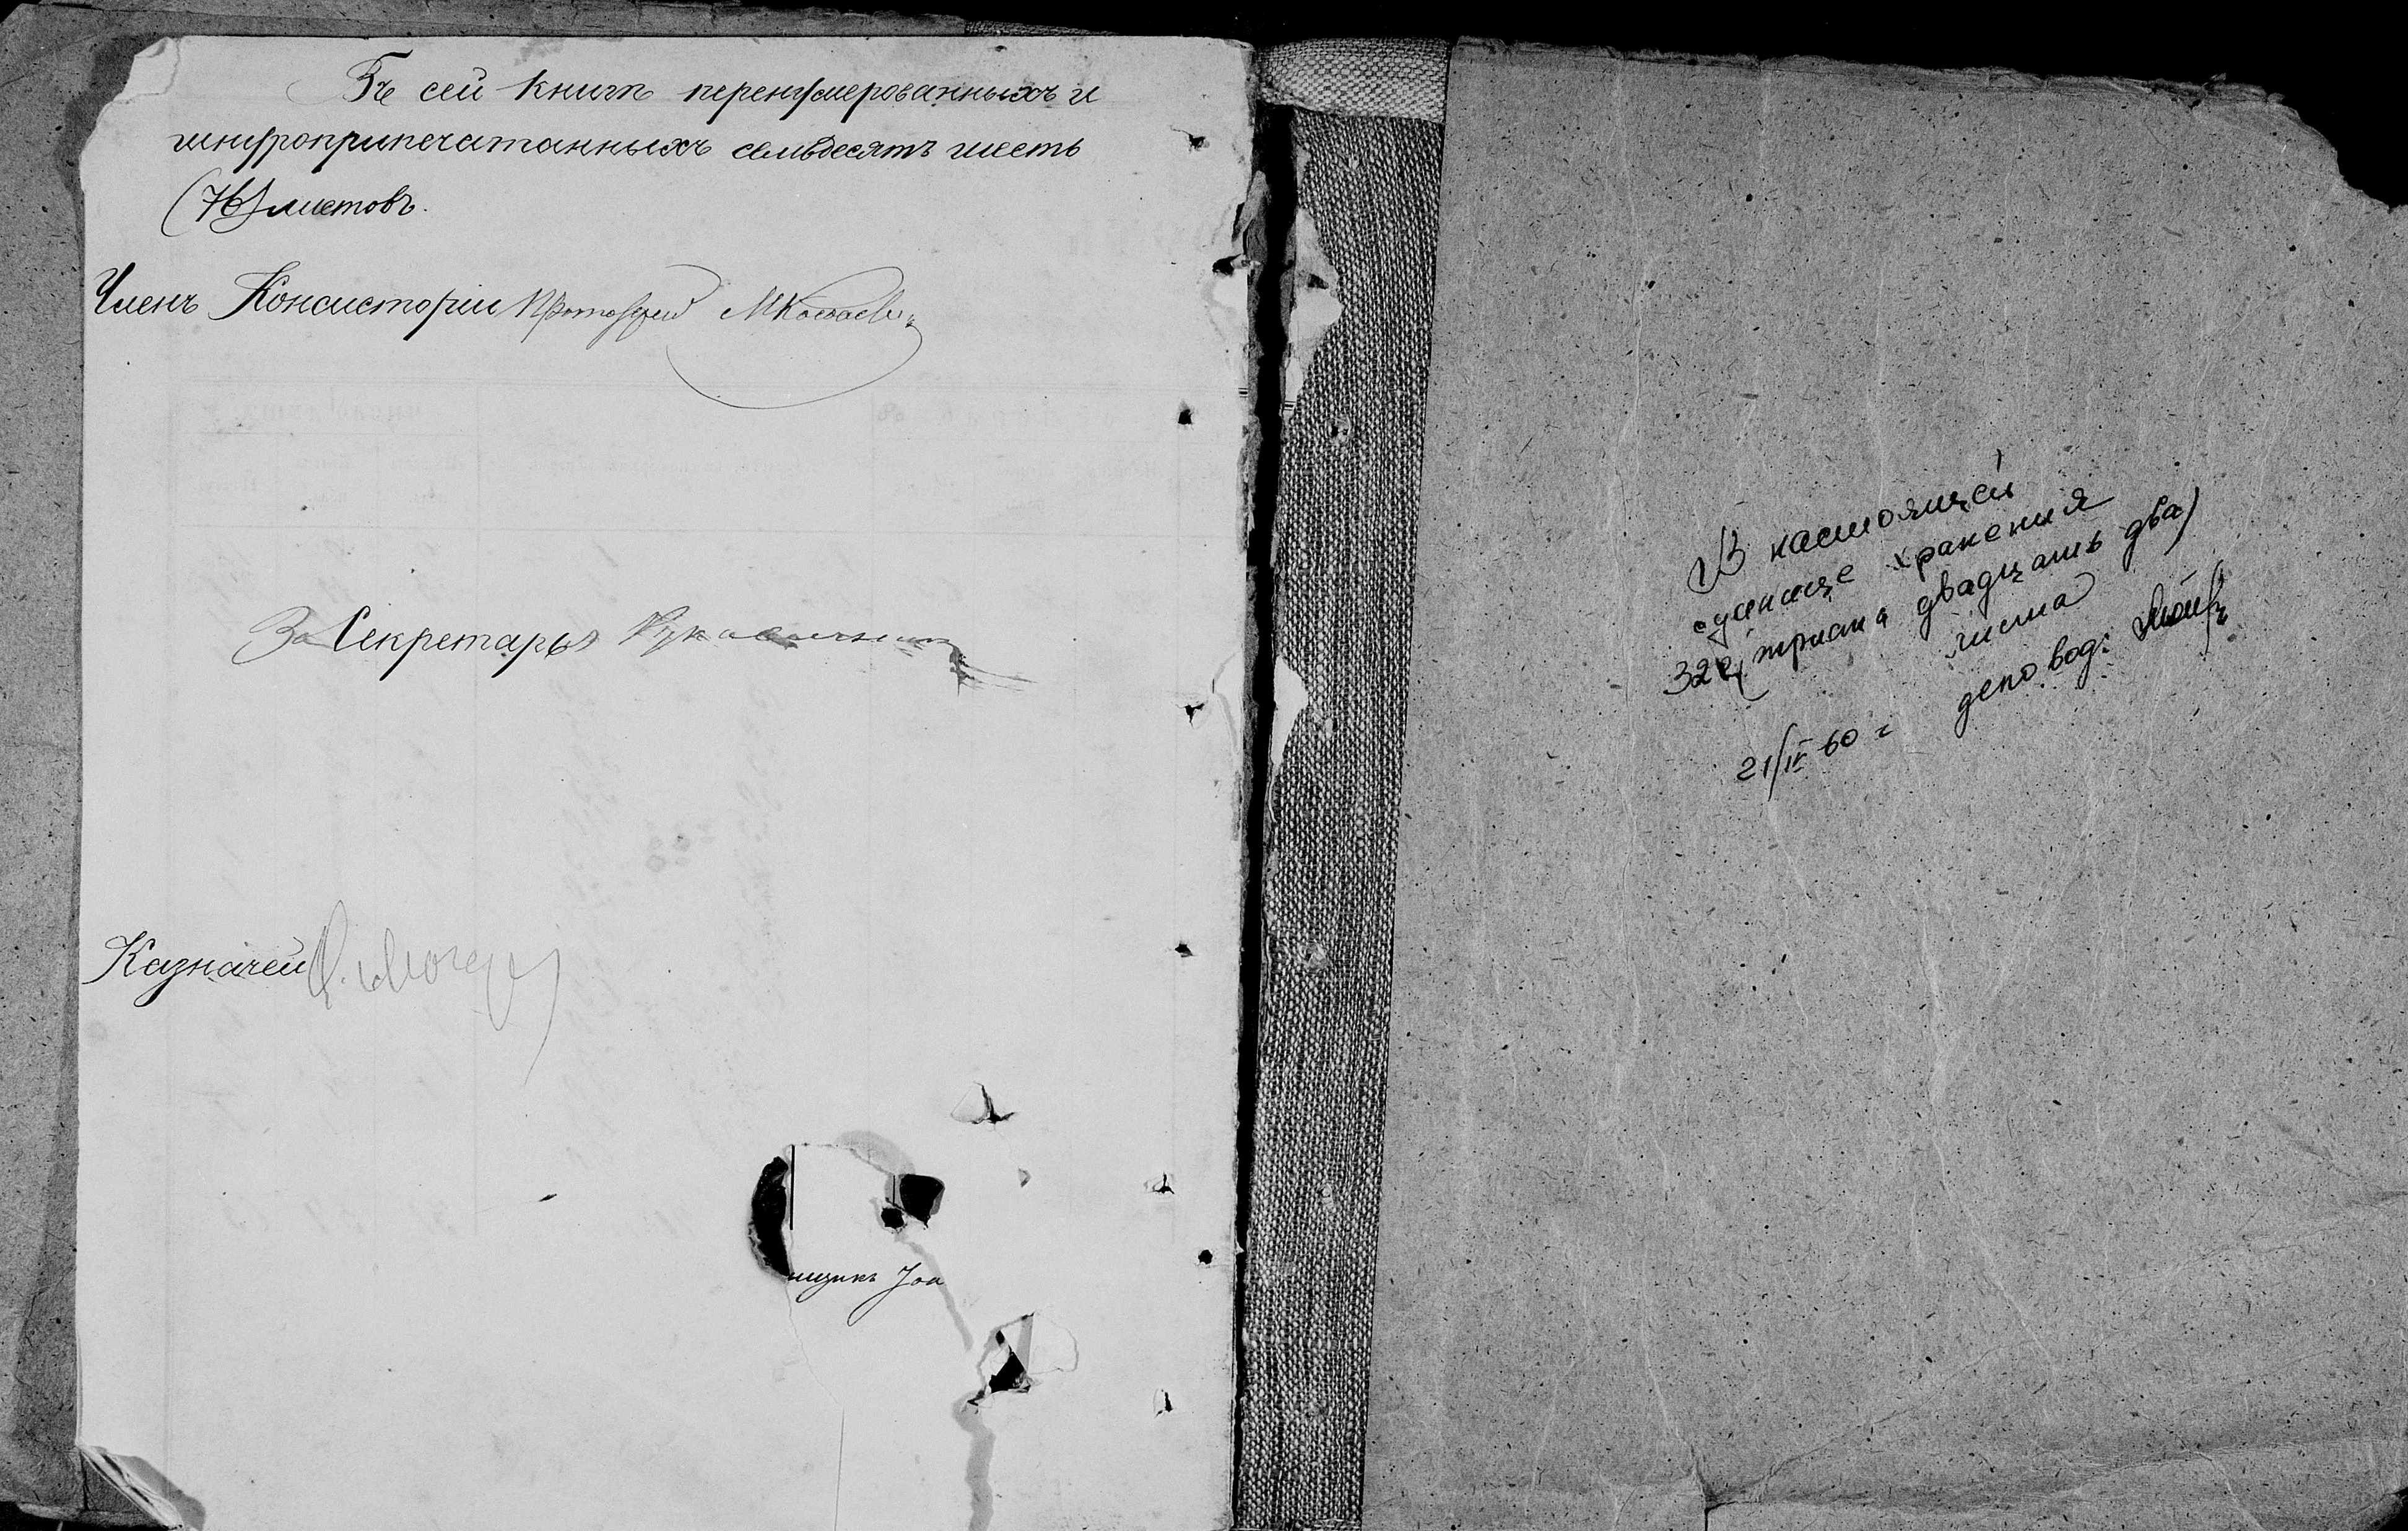 Въ сей книгѣ перенумерованныхъ и
шнуроприпечатанныхъ семьдесятъ шесть
(76) листовъ.
Членъ Консисторіи Протоіерей
За Секретаря
Казначей
щикъ Іоа
В настоящей
единице хранения
322 (триста двадцать два)
листа
21/IV 60 г деловод: